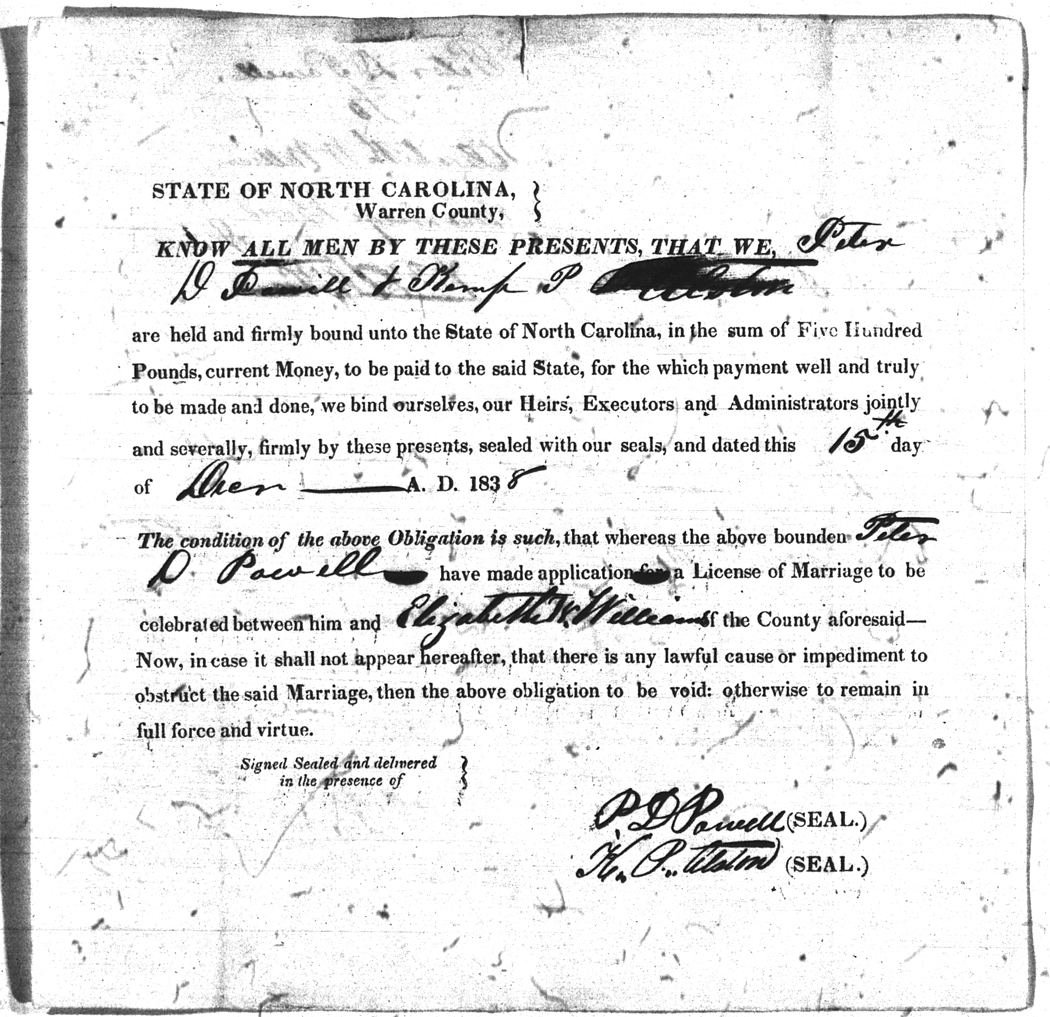 STATE OF NORTH CAROLINA,
Warren County,
KNOW ALL MEN BY THESE PRESENTS, THAT WE, Peter
D Powell & Kemp P Alston
are held and firmly bound unto the State of North Carolina, in the sum of Five Hundred
Pounds, current Money, to be paid to the said State, for the which payment well and truly
to be made and done, we bind ourselves, our Heirs, Executors and Administrators jointly
and severally, firmly by these presents, sealed with our seals, and dated this 15th day
of A. D. 1838
The condition of the above Obligation is such, that whereas the above bounden Peter
D. Powell have made application for a License of Marriage to be
celebrated between him and Elizabeth W. Williams of the County aforesaid—
Now, in case it shall not appear hereafter, that there is any lawful cause or impediment to
obstruct the said Marriage, then the above obligation to be void: otherwise to remain in
full force and virtue.
Signed Sealed and delivered
in the presence of
P. D Powell (SEAL.)
K. P. Alston (SEAL.)